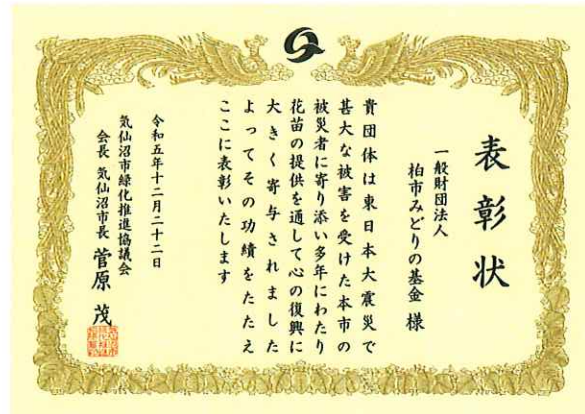 表彰状
一般財団法人
柏市みどりの基金 様
貴団体は東日本大震災で
甚大な被害を受けた本市の
被災者に寄り添い多年にわたり
花苗の提供を通して心の復興に
大きく寄与されました
よってその功績をたたえ
ここに表彰いたします
令和五年十二月二十二日
気仙沼市緑化推進協議会
会長 気仙沼市長 菅原 茂